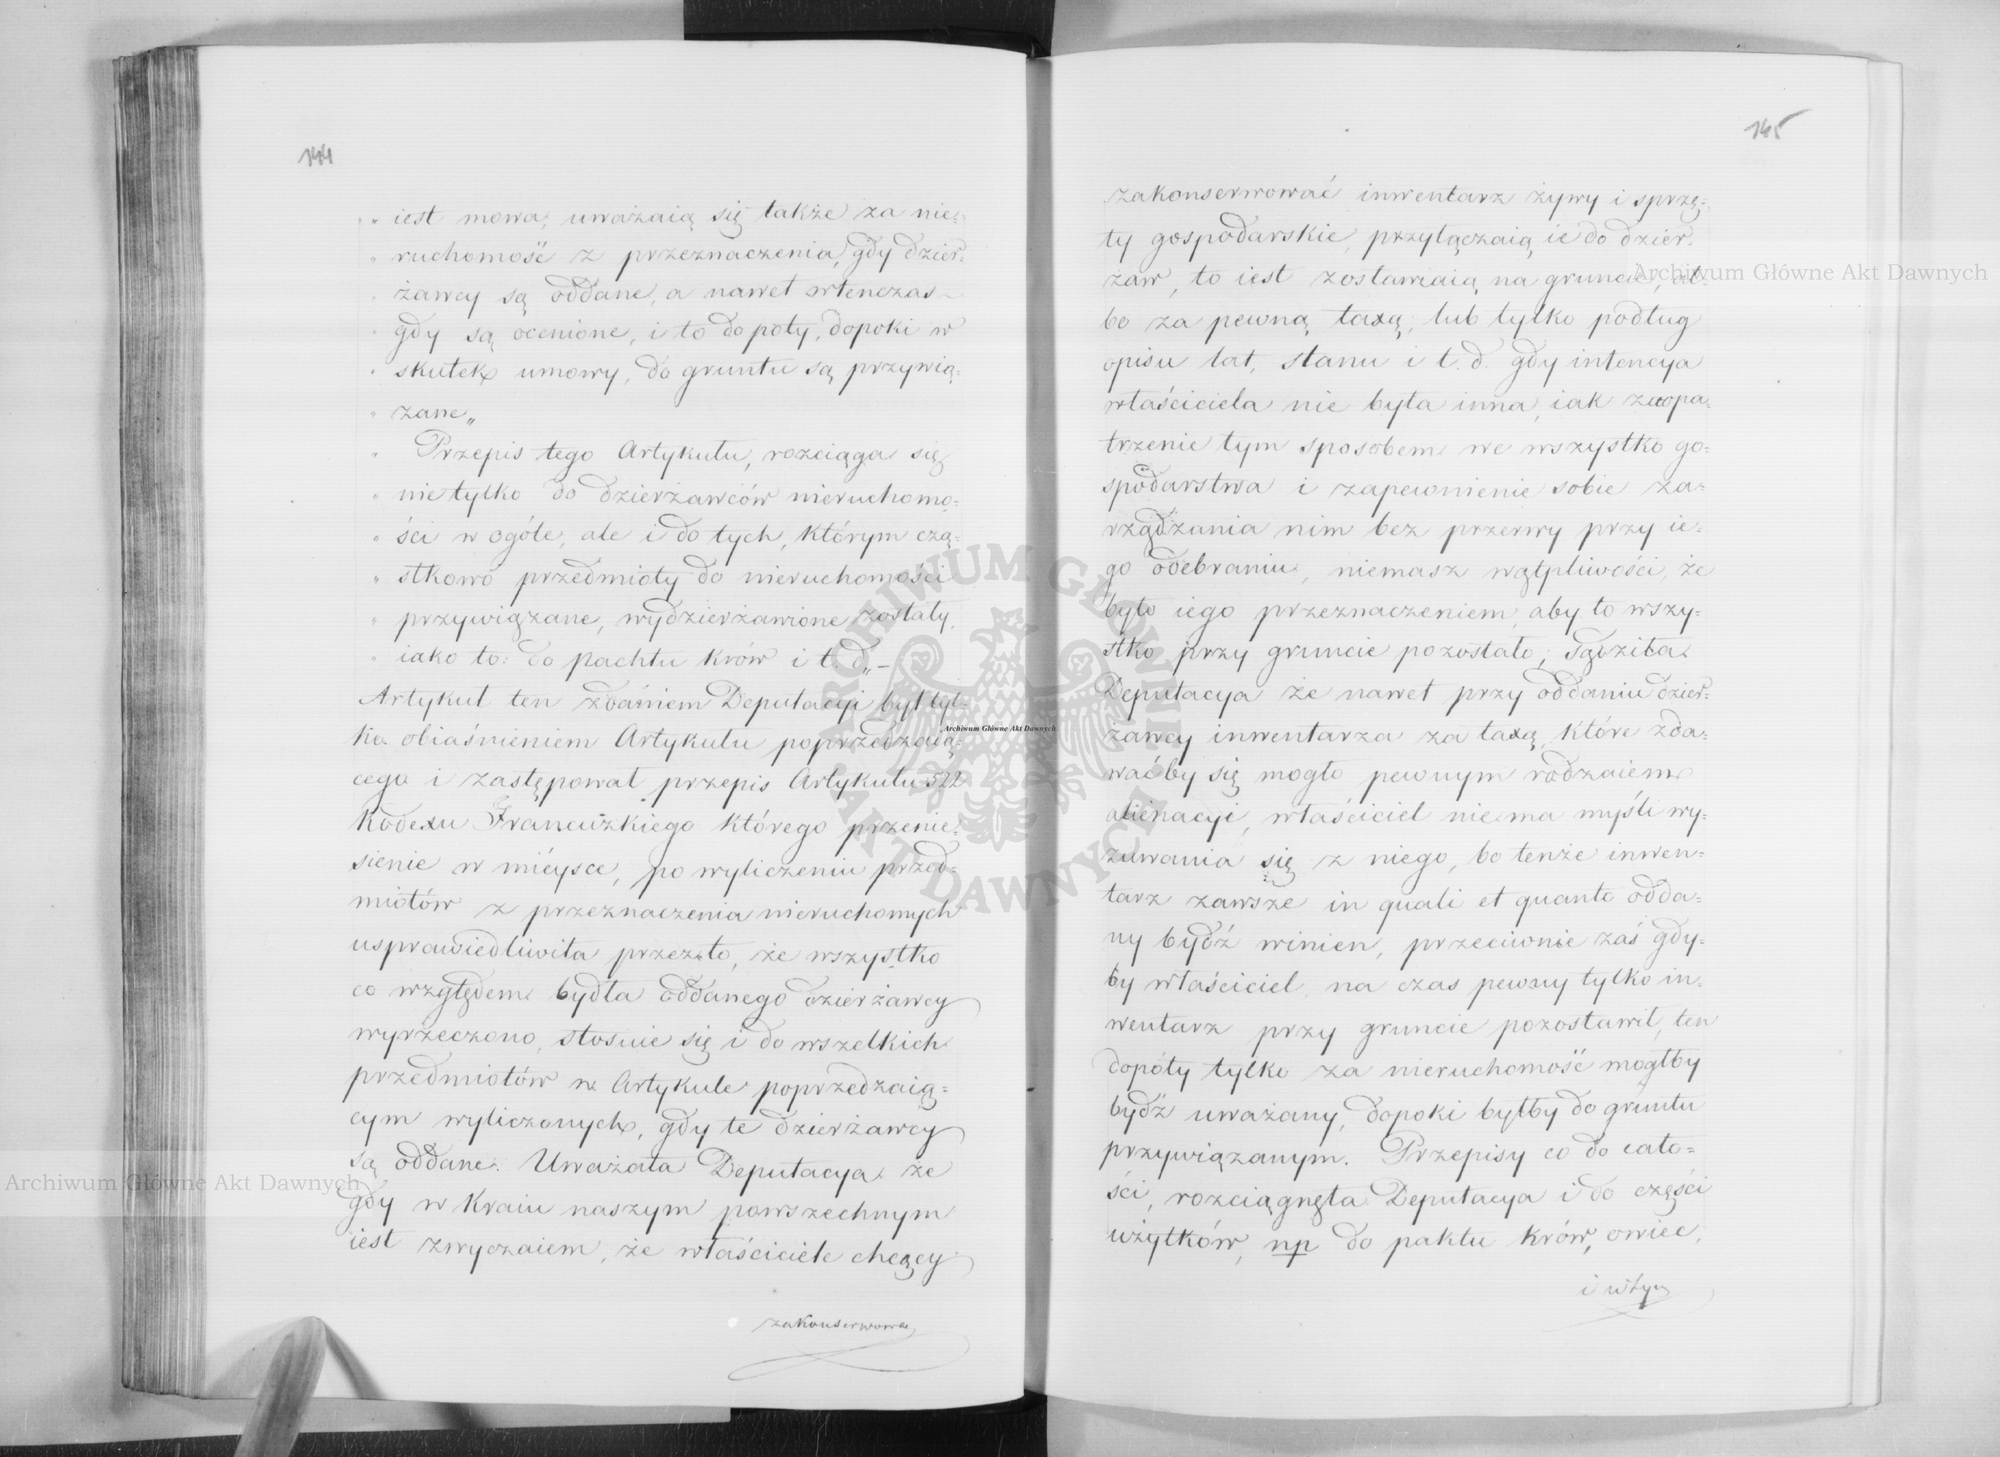 144
„ iest mowa, uważaią się także za nie-
„ ruchomość z przeznaczenia, gdy dzier-
„ żawcy są oddane, a nawet wtenczas
„ gdy są ocenione, i to dopoty, dopoki w
„ skutek umowy, do gruntu są przywią-
„ zane„
„ Przepis tego Artykułu, rozciąga się
„ nietylko do dzierżawców nieruchomo-
„ ści w ogóle, ale i do tych, którym czą-
„ stkowo przedmioty do nieruchomości
„ przywiązane, wydzierżawione zostały,
„ iako to: do pachtu krów i t. d„—
Artykuł ten zdaniem Deputacyi był tyl-
ko obiaśnieniem Artykułu poprzedzaią-
cego i zastępował przepis Artykułu 522
Kodexu Francuzkiego którego przenie-
sienie w mieysce, po wyliczeniu przed-
miotów z przeznaczenia nieruchomych
usprawiedliwiła przezto, że wszystko
co względem bydła oddanego dzierżawcy
wyrzeczono, stosuie się i do wszelkich
przedmiotów w Artykule poprzedzaią-
cym wyliczonych, gdy te dzierżawcy
są oddane. Uważała Deputacya że
gdy w Kraiu naszym powszechnym
iest zwyczaiem, że właściciele chcący
zakonserwować
145
zakonserwować inwentarz żywy i sprzę-
ty gospodarskie, przyłączaią ie do dzier-
żaw, to iest zostawiaią na gruncie, al-
bo za pewną taxą, lub tylko podług
opisu lat, stanu i t. d. gdy intencya
właściciela nie była inna, iak zaopa-
trzenie tym sposobem we wszystko go-
spodarstwa i zapewnienie sobie za-
rządzania nim bez przerwy przy ie-
go odebraniu, niemasz wątpliwości, że
było iego przeznaczeniem, aby to wszy-
stko przy gruncie pozostało; Sądziła
Deputacya że nawet przy oddaniu dzier-
żawcy inwentarza za taxą, które zda-
waćby się mogło pewnym rodzaiem
alienacyi, właściciel niema myśli wy-
zuwania się z niego, bo tenże inwen-
tarz zawsze in quali et quanto odda-
ny bydź winien, przeciwnie zaś gdy-
by właściciel, na czas pewny tylko in-
wentarz przy gruncie pozostawił, ten
dopóty tylko za nieruchomość mogłby
bydź uważany, dopoki byłby do gruntu
przywiązanym. Przepisy co do cało-
ści, rozciągnęła Deputacya i do części
użytków, np do paktu krów, owiec,
Archiwum Główne Akt Dawnych
Archiwum Główne Akt Dawnych
Archiwum Główne Akt Dawnych
ARCHIWUM GŁÓWNE AKT DAWNYCH